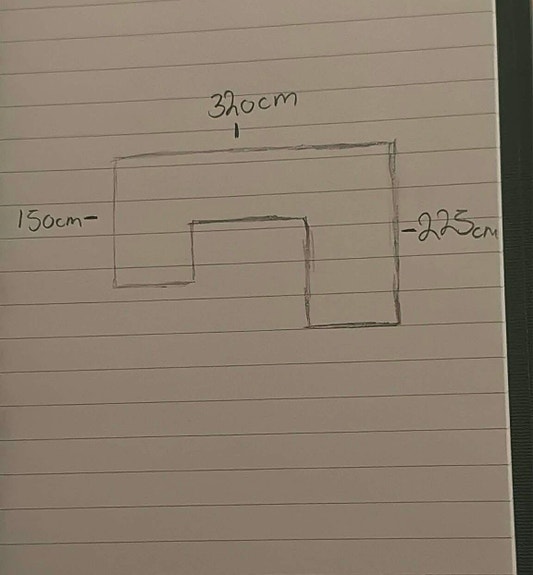 320cm
150cm-
-225cm